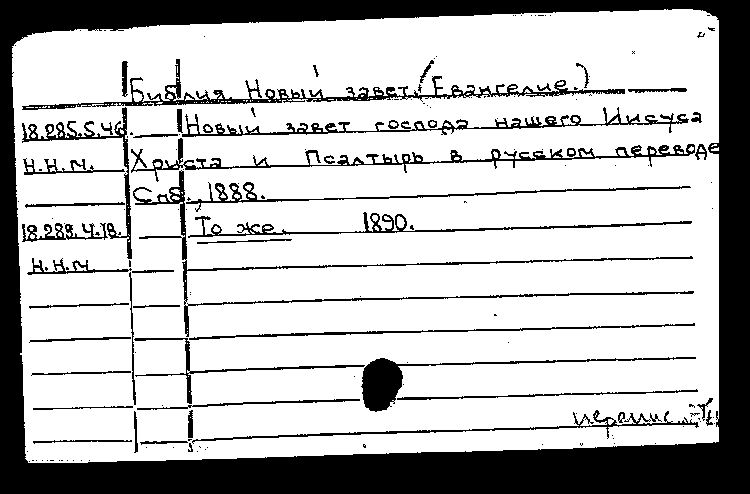 Библия. Новый завет. (Евангелие.)
18.285.5.46. Новый завет господа нашего Иисуса
н.н.м. Христа и Псалтырь в русском переводе
Спб., 1888.
18.289.4.18. То же. 1890.
н.н.м